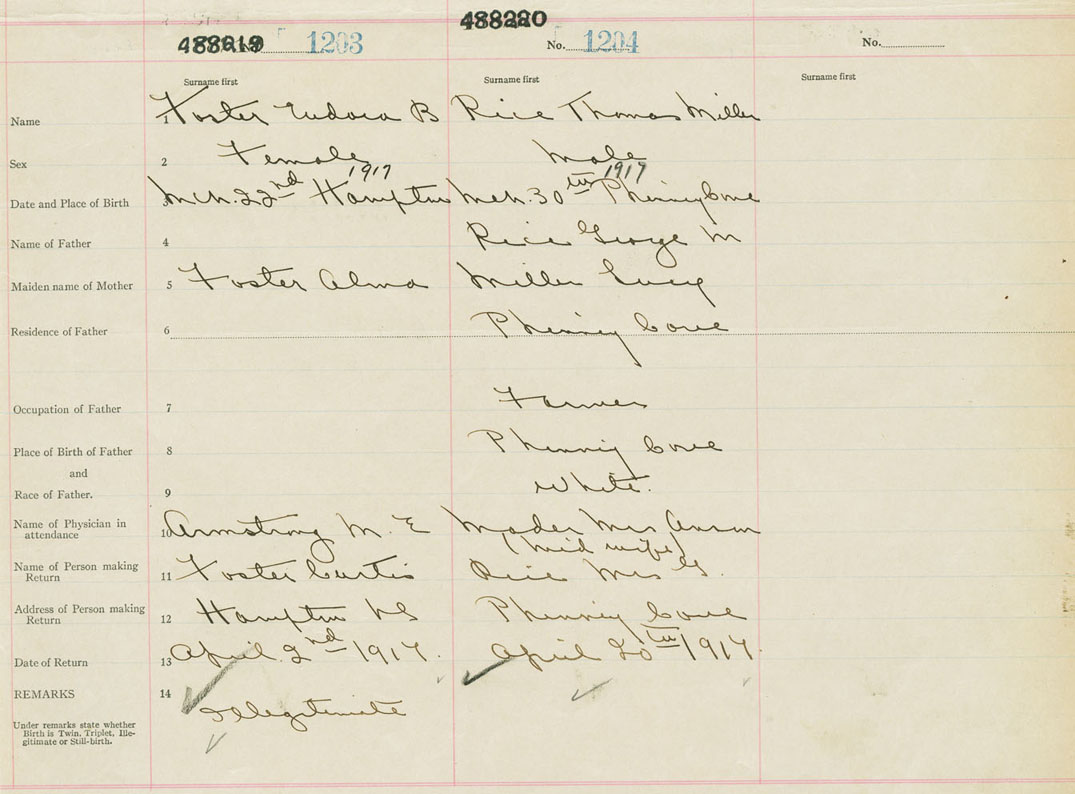 488220
488219 1203 No. 1204 No.
Surname first Surname first Surname first
Name 1 Foster Eudora B Rice Thomas Miller
Sex 2 Female Male
1917 1917
Date and Place of Birth 3 Mch. 22nd Hampton Mch. 30th Phinney Cove
Name of Father 4 Rice George M
Maiden name of Mother 5 Foster Alma Miller Lucy
Residence of Father 6 Phinney Cove
Occupation of Father 7 Farmer
Place of Birth of Father 8 Phinney Cove
and
Race of Father. 9 White.
Name of Physician in
attendance 10 Armstrong M. E Mader Mrs
(Mid wife)
Name of Person making
Return 11 Foster Curtis Rice Mrs G.
Address of Person making
Return 12 Hampton NS Phinney Cove
Date of Return 13 April 2nd 1917. April 20th 1917.
REMARKS 14 Illegitimate
Under remarks state whether
Birth is Twin, Triplet, Ille-
gitimate or Still-birth.